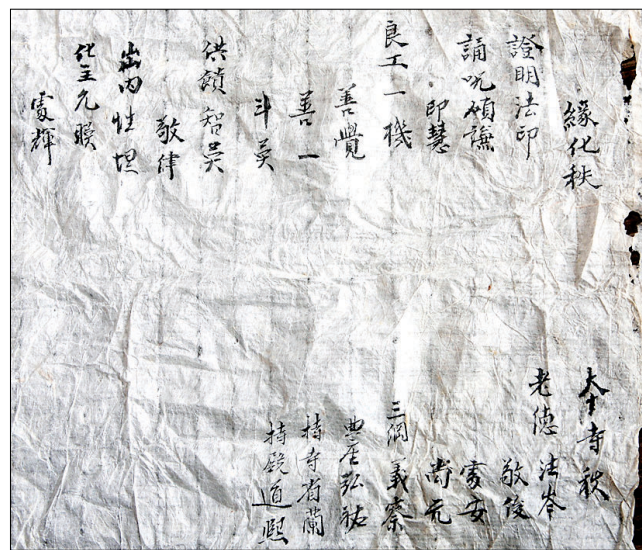 緣化秩
證明法印
誦呪碩
印慧
良工一機
善覺
善一
斗英
供 智英
敬律
出內性坦
化主允
雯輝
本寺秩
老德 法岑
敬俊
雯安
尚元
三綱 義察
典座弘祐
持寺省蘭
持殿道熙